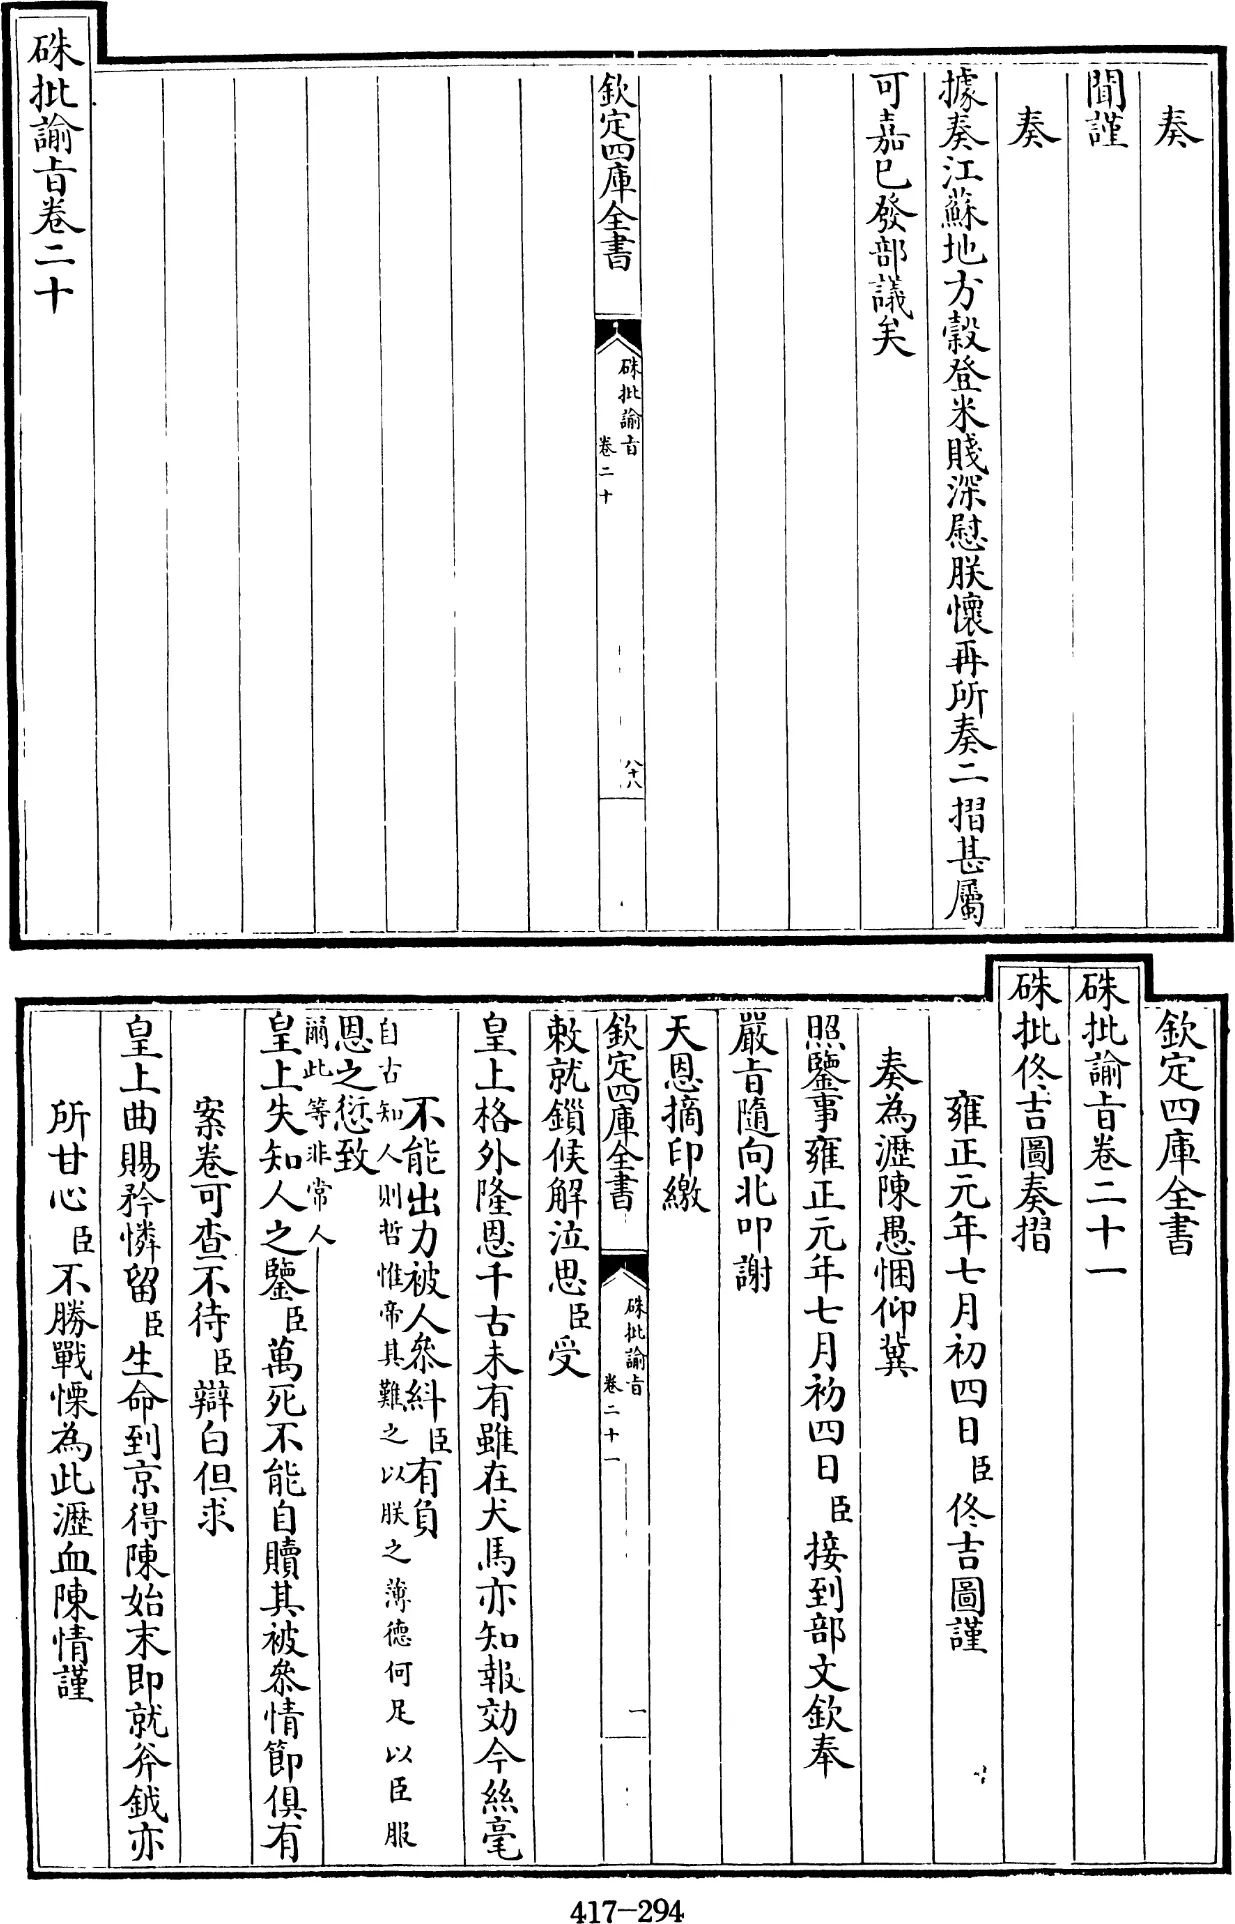 奏
聞謹
奏
據奏江蘇地方穀登米賤深慰朕懷再所奏二摺甚屬
可嘉已發部議矣
欽定四庫全書
硃批諭旨
卷二十
八十八
硃批諭旨卷二十
欽定四庫全書
硃批諭旨卷二十一
硃批佟吉圖奏摺
雍正元年七月初四日臣佟吉圖謹
奏為瀝陳愚悃仰冀
照鑒事雍正元年七月初四日臣接到部文欽奉
嚴旨隨向北叩謝
天恩摘印繳
欽定四庫全書
硃批諭旨
卷二十一
一
敕就鎖候解泣思臣受
皇上格外隆恩千古未有雖在犬馬亦知報効今絲毫
不能出力被人叅糾臣有負
自古知人則哲惟帝其難之以朕之薄德何足以臣服
恩之愆致
爾此等非常人
皇上失知人之鑒臣萬死不能自贖其被叅情節俱有
案卷可查不待臣辯白但求
皇上曲賜矜憐留臣生命到京得陳始末即就斧鉞亦
所甘心臣不勝戰慄為此瀝血陳情謹
417-294